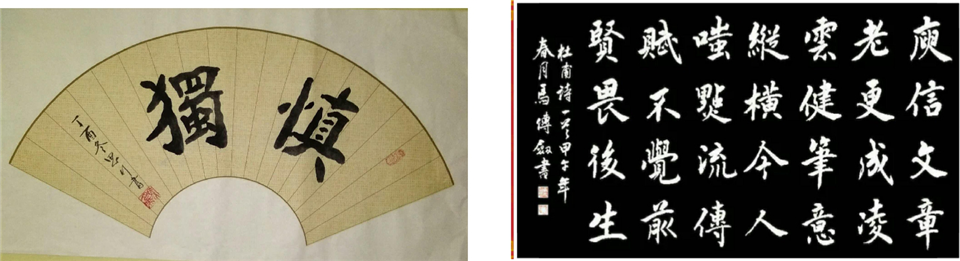 慎獨
丁酉冬
書
庾信文章
老更成凌
雲健筆意
縱橫今人
嗤點流傳
賦不覺前
賢畏後生
杜甫詩一首甲午年
春月馬傳敘書